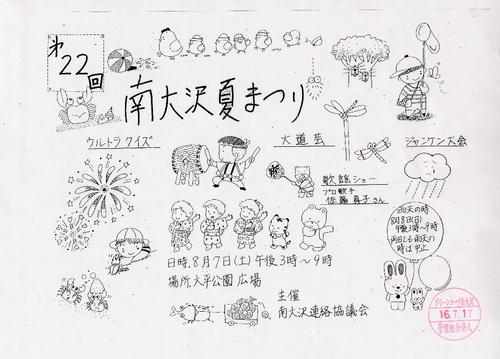 第22回
南大沢夏まつり
ウルトラクイズ
大道芸
ジャンケン大会
歌謡ショー
プロ歌手
佐藤真子さん
雨天の時
8月8日(日)
午後3時〜9時
両日とも雨天の
時は中止
日時、8月7日(土)午後3時〜9時
場所 大平公園広場
主催
南大沢連絡協議会
グリーンコープ南大沢
16.7.17
管理組合法人